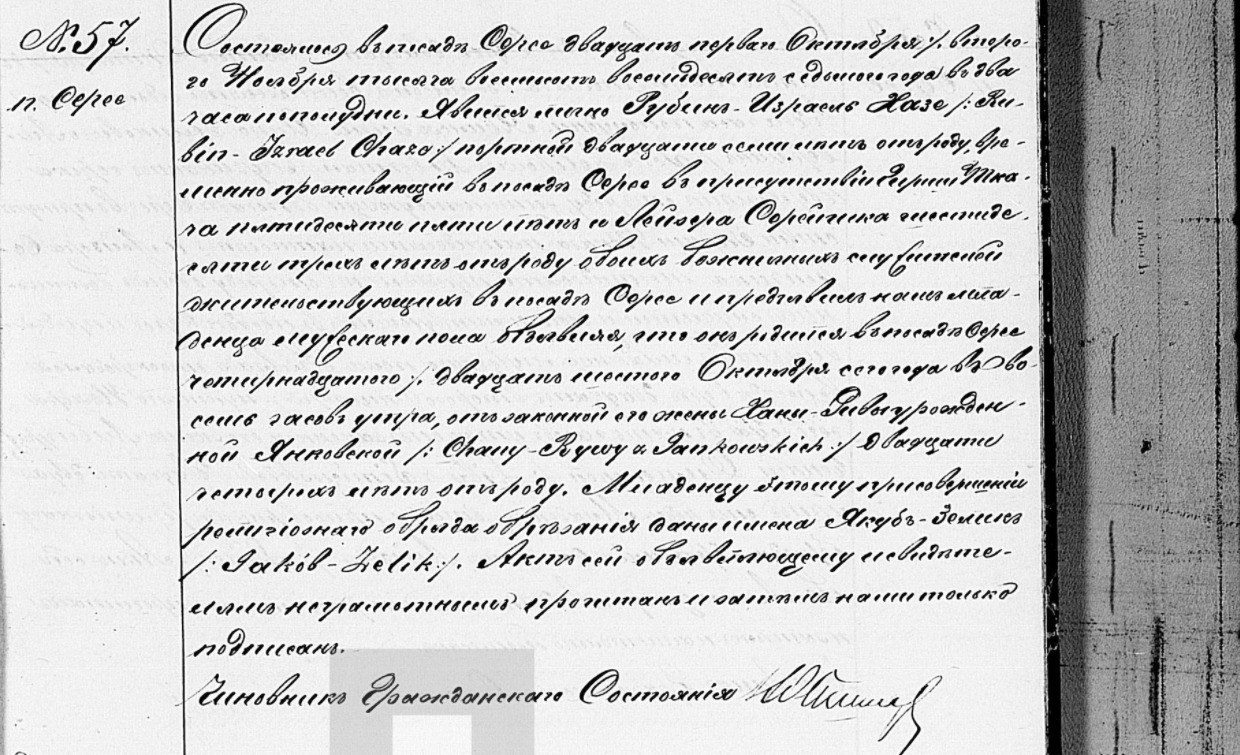 № 57.
п. Серее
Состоялось въ посадѣ Серее двадцать перваго Октября /. второ-
го Ноября тысяча восемьсотъ восемьдесятъ седьмого года въ два
часа пополудни. Явился лично Рубинъ-Израель Хазе /: Ru-
bin-Izrael Chaze :/ портной двадцати семи лѣтъ отъ роду, вре-
менно проживающій въ посадѣ Серее въ присутствіи Ткa-
ча пятидесяти пяти лѣтъ и Лейзера Серейчика шестиде-
сяти трехъ лѣтъ отъ роду обоихъ божничныхъ служителей
жительствующихъ въ посадѣ Серее и предъявилъ намъ мла-
денца мужескаго пола объявляя, что онъ родился въ посадѣ Серее
четырнадцатого /. двадцать шестого Октября сего года въ во-
семь часовъ утра, отъ законной его жены Ханы-Ривы урожден-
ной Янковской /: Chany-Rywy z Jankowskich :/ двадцати
четырехъ лѣтъ отъ роду. Младенцу этому при совершеніи
религіознаго обряда обрѣзанія даны имена Якубъ-Зеликъ
/: Jakób-Zelik :/. Актъ сей объявляющему и свидѣте-
лямъ неграмотнымъ прочитанъ и затѣмъ нами только
подписанъ.
Чиновникъ Гражданскаго Состоянія